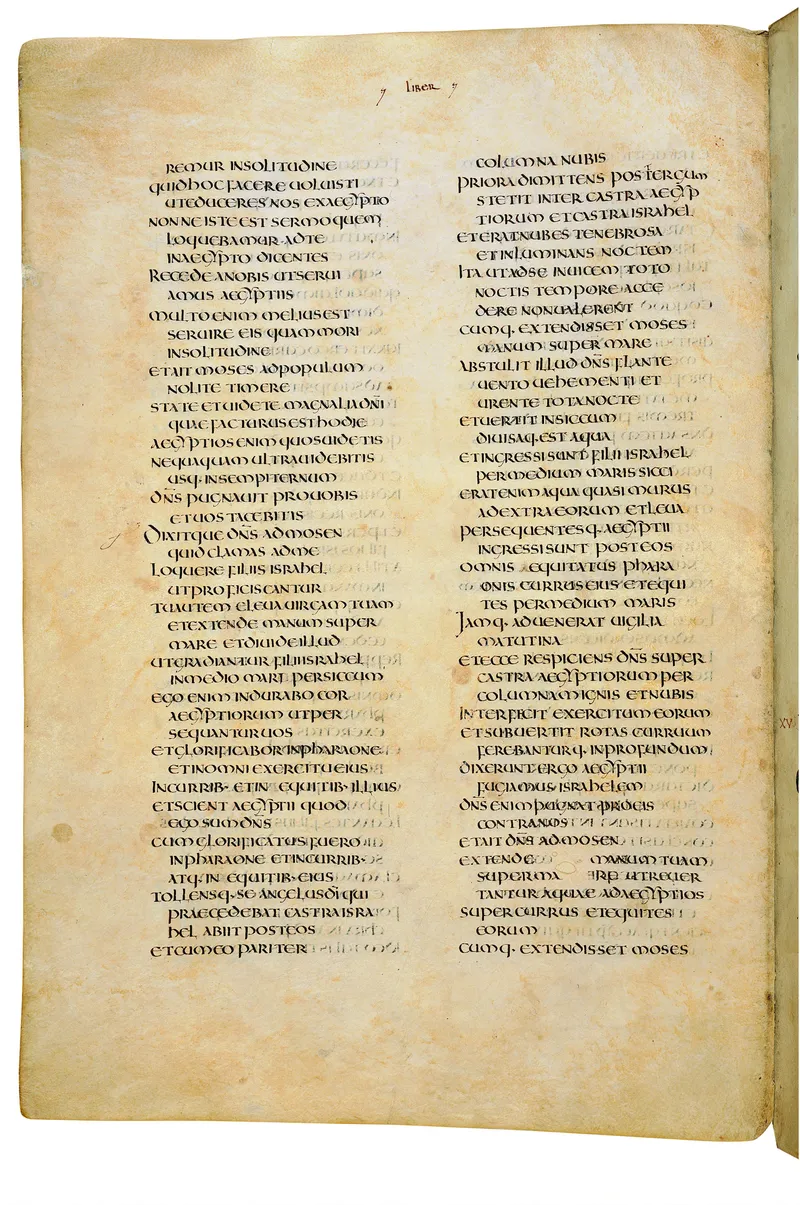 liber
REMUR INSOLITUDINE
QUIDHOC FACERE UOLUISTI
UTEDUCERES NOS EXAEGYPTO
NONNE ISTE EST SERMO QUEM
LOQUEBAMUR ADTE
INAEGYPTO DICENTES
RECEDE ANOBIS UTSERUI
AMUS AEGYPTIIS
MULTO ENIM MELIUS EST
SERUIRE EIS QUAM MORI
INSOLITUDINE
ETAIT MOSES ADPOPULUM
NOLITE TIMERE
STATE ETUIDETE MAGNALIA DNI
QUAE FACTURUS EST HODIE
AEGYPTIOS ENIM QUOS UIDETIS
NEQUAQUAM ULTRA UIDEBITIS
USQ· INSEMPITERNUM
DNS PUGNAUIT PROUOBIS
ETUOS TACEBITIS
DIXITQUE DNS ADMOSEN
QUID CLAMAS ADME
LOQUERE FILIIS ISRAHEL
UTPROFICISCANTUR
TUAUTEM ELEUA UIRGAM TUAM
ETEXTENDE MANUM SUPER
MARE ETDIUIDE ILLUD
UTGRADIANTUR FILII ISRAHEL
INMEDIO MARI PERSICCUM
EGO ENIM INDURABO COR
AEGYPTIORUM UTPER
SEQUANTUR UOS
ETGLORIFICABOR INPHARAONE
ETINOMNI EXERCITU EIUS
INCURRIB· ETIN EQUITIB· ILLIUS
ETSCIENT AEGYPTII QUOD
EGO SUM DNS
CUM GLORIFICATUS FUERO
INPHARAONE ETINCURRIB·
ATQ· IN EQUITIB· EIUS
TOLLENSQ· SE ANGELUS DI QUI
PRAECEDEBAT CASTRA ISRA
HEL ABIIT POST EOS
ETCUM EO PARITER
COLUMNA NUBIS
PRIORA DIMITTENS POS TERGUM
STETIT INTER CASTRA AEGYP
TIORUM ETCASTRA ISRAHEL
ETERAT NUBES TENEBROSA
ETINLUMINANS NOCTEM
ITA UTADSE INUICEM TOTO
NOCTIS TEMPORE ACCE
DERE NON UALERENT
CUMQ· EXTENDISSET MOSES
MANUM SUPER MARE
ABSTULIT ILLUD DNS FLANTE
UENTO UEHEMENTI ET
URENTE TOTA NOCTE
ETUERTIT INSICCUM
DIUISAQ· EST AQUA
ETINGRESSI SUNT FILII ISRAHEL
PERMEDIUM MARIS SICCI
ERAT ENIM AQUA QUASI MURUS
ADEXTRA EORUM ETLEUA
PERSEQUENTESQ· AEGYPTII
INGRESSI SUNT POST EOS
OMNIS EQUITATUS PHARA
ONIS CURRUS EIUS ETEQUI
TES PERMEDIUM MARIS
IAMQ· ADUENERAT UIGILIA
MATUTINA
ETECCE RESPICIENS DNS SUPER
CASTRA AEGYPTIORUM PER
COLUMNAM IGNIS ETNUBIS
INTERFECIT EXERCITUM EORUM
ETSUBUERTIT ROTAS CURRUUM
FEREBANTURQ· INPROFUNDUM
DIXERUNT ERGO AEGYPTII
FUGIAMUS ISRAHELEM
DNS ENIM PUGNAT PROEIS
CONTRANOS
ETAIT DNS ADMOSEN
EXTENDE MANUM TUAM
SUPERMA RE UTREUER
TANTUR AQUAE ADAEGYPTIOS
SUPER CURRUS ETEQUITES
EORUM
CUMQ· EXTENDISSET MOSES
XV